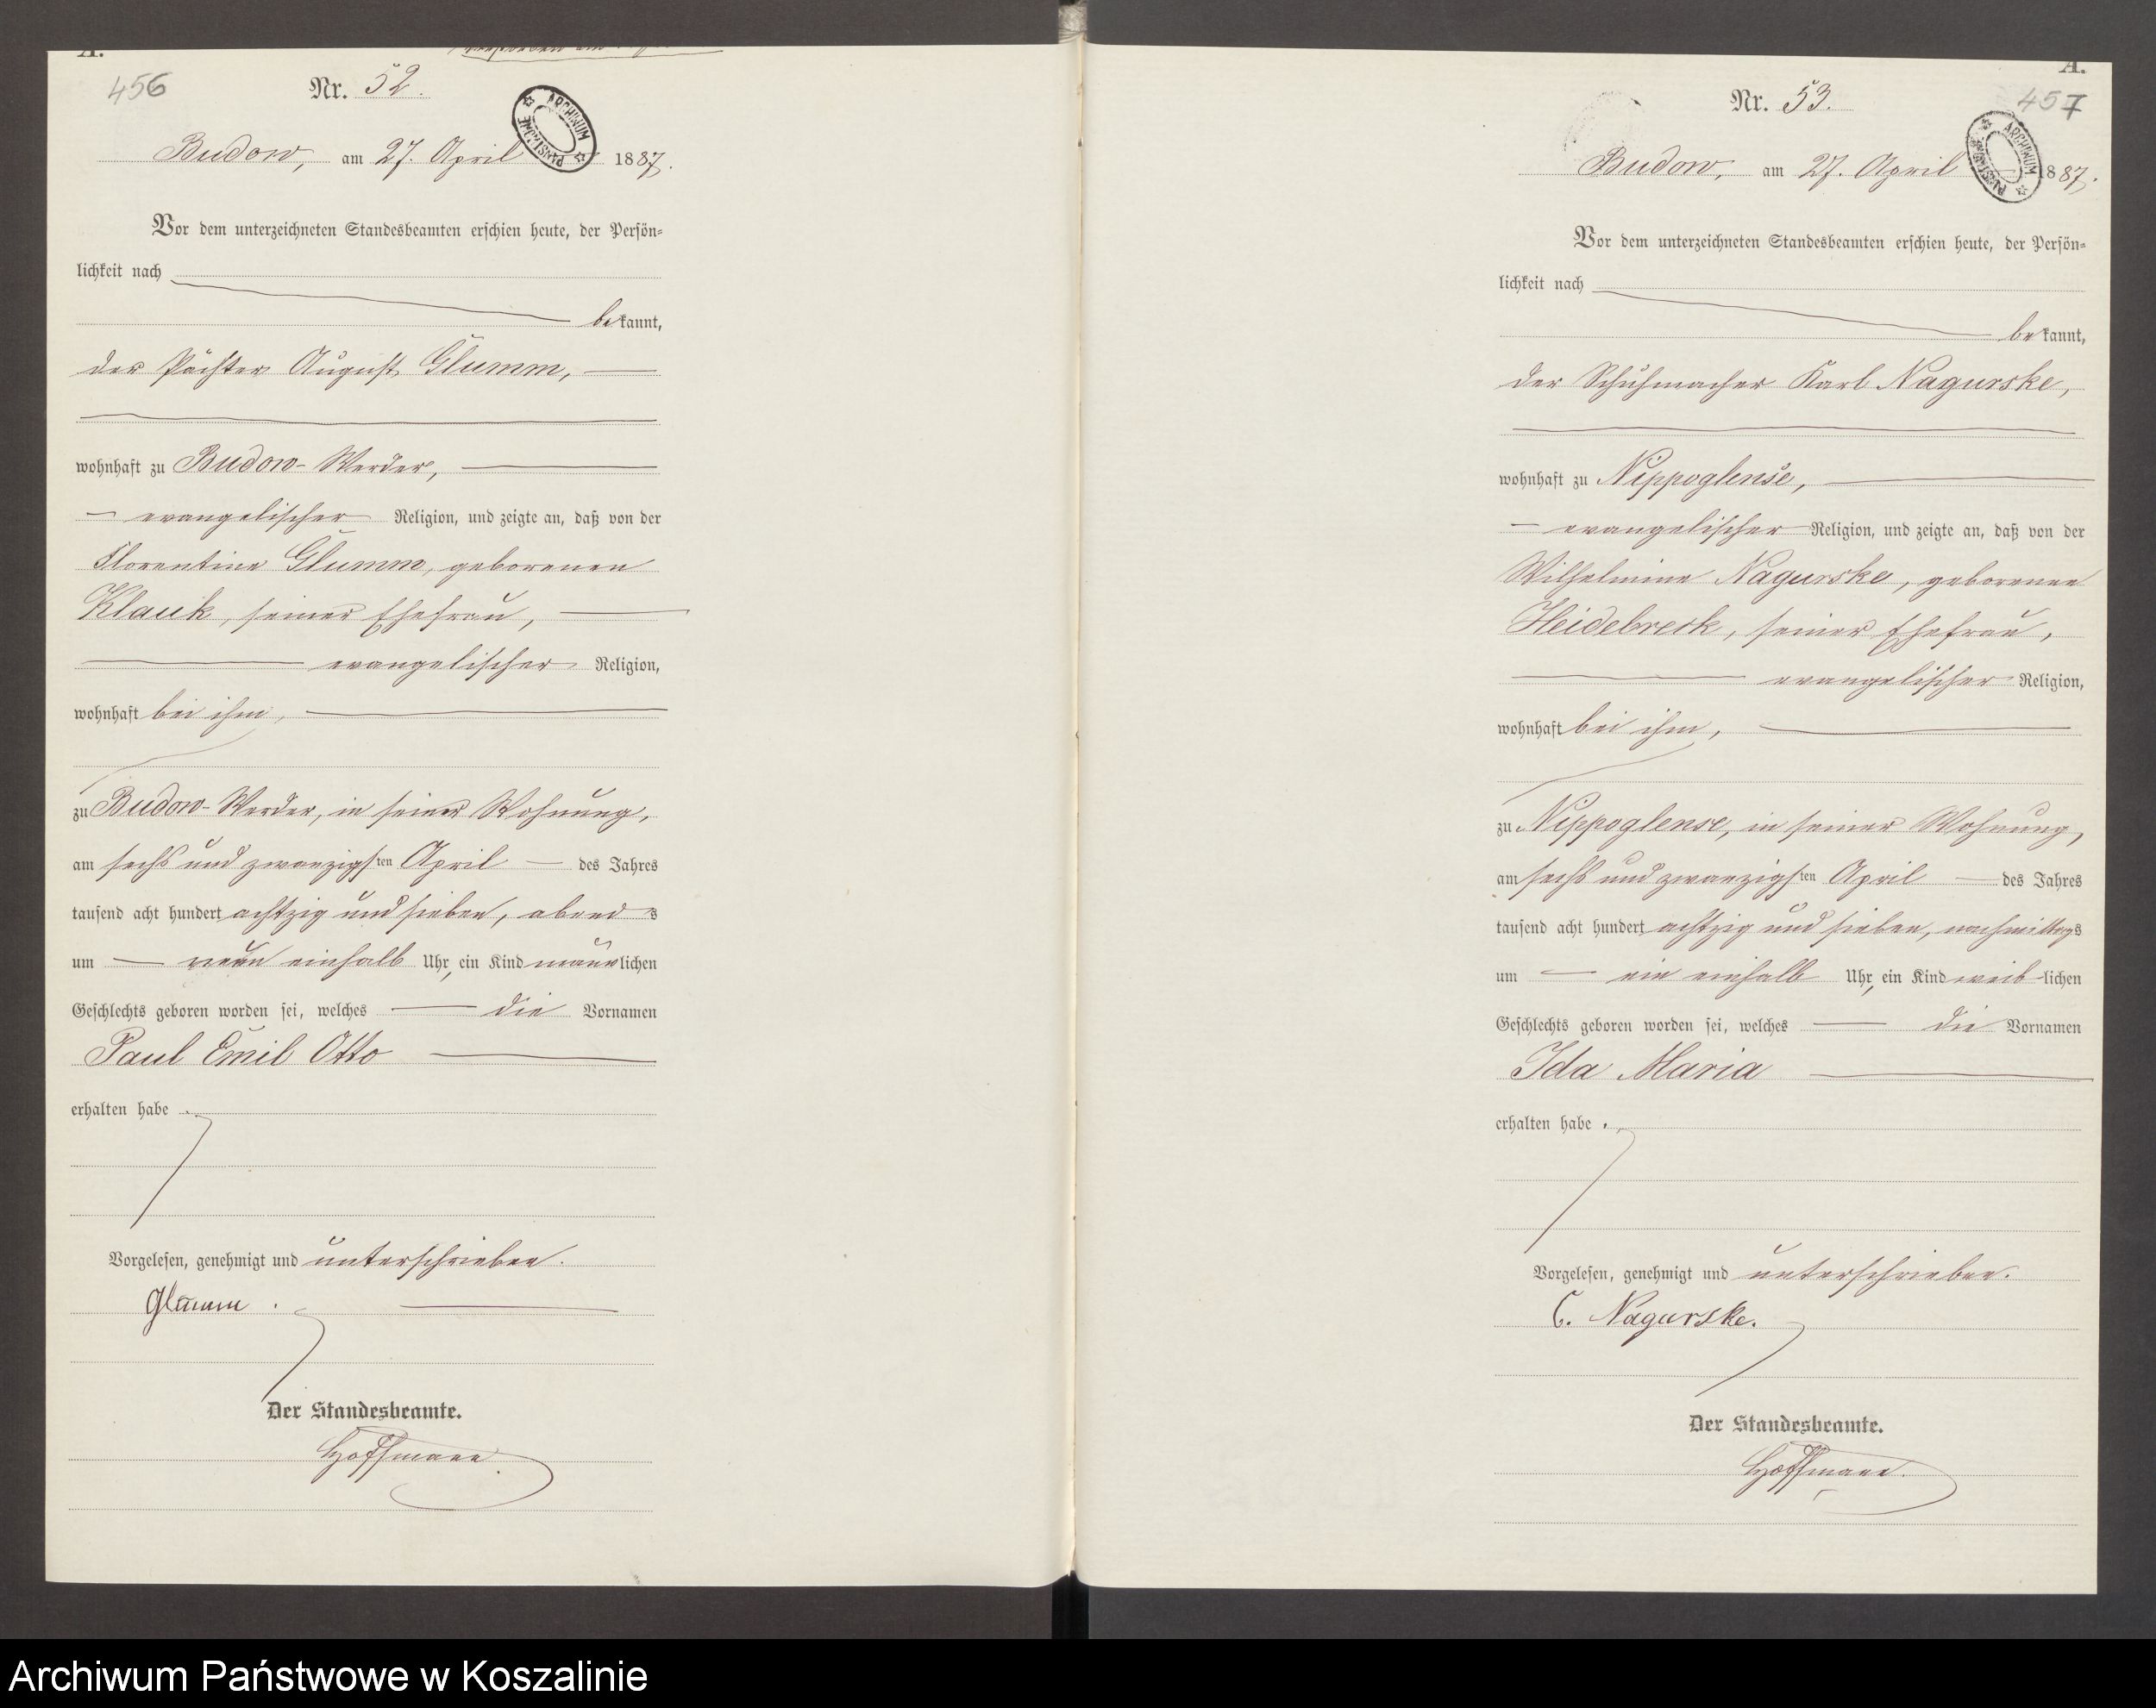 A.
456
Nr. 52.
ARCHIWUM PAŃSTWOWE
Budow, am 27. April 1887.
Vor dem unterzeichneten Standesbeamten erschien heute, der Persön-
lichkeit nach
bekannt,
der Pächter August Glumm,
wohnhaft zu Budow-Werder,
evangelischer Religion, und zeigte an, daß von der
Florentine Glumm, geborenen
Klauk, seiner Ehefrau,
evangelischer Religion,
wohnhaft bei ihm,
zu Budow-Werder, in seiner Wohnung,
am sechs und zwanzigsten April des Jahres
tausend acht hundert achtzig und sieben, abends
um neun einhalb Uhr, ein Kind männlichen
Geschlechts geboren worden sei, welches die Vornamen
Paul Emil Otto
erhalten habe.
Vorgelesen, genehmigt und unterschrieben.
Glumm.
Der Standesbeamte.
Hoffmann.
A.
457
Nr. 53.
ARCHIWUM PAŃSTWOWE
Budow, am 27. April 1887.
Vor dem unterzeichneten Standesbeamten erschien heute, der Persön-
lichkeit nach
bekannt,
der Schuhmacher Karl Nagurske,
wohnhaft zu Nippoglense,
evangelischer Religion, und zeigte an, daß von der
Wilhelmine Nagurske, geborenen
Heidebreck, seiner Ehefrau,
evangelischer Religion,
wohnhaft bei ihm,
zu Nippoglense, in seiner Wohnung,
am sechs und zwanzigsten April des Jahres
tausend acht hundert achtzig und sieben, nachmittags
um ein einhalb Uhr, ein Kind weiblichen
Geschlechts geboren worden sei, welches die Vornamen
Ida Maria
erhalten habe.
Vorgelesen, genehmigt und unterschrieben.
C. Nagurske.
Der Standesbeamte.
Hoffmann.
Archiwum Państwowe w Koszalinie